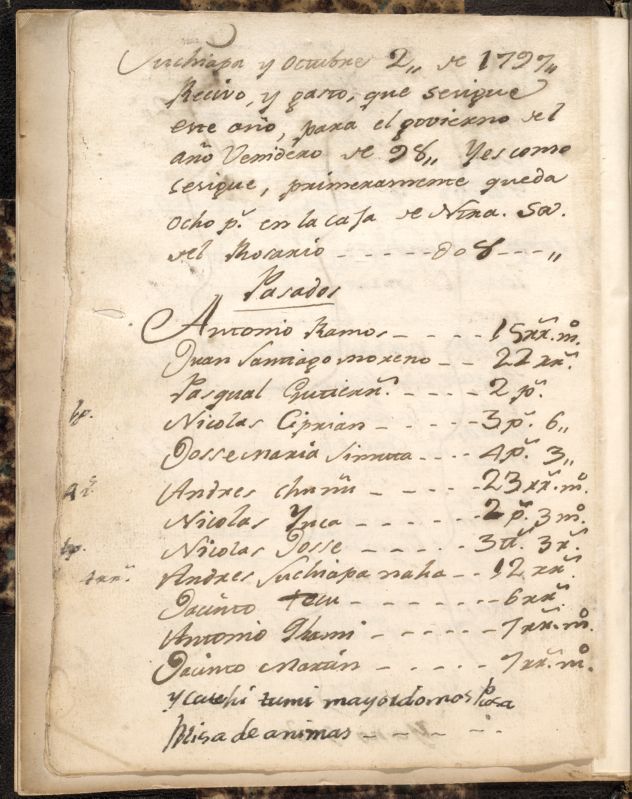 Suchiapa y Octubre 2,, de 1797,,
Recivo, y gasto, que serique
este año, para el govierno del
año Venidero de 98,, Yescomo
sesigue, primeramente queda
ocho ps. en la casa de Ntra. Sa.
del Rosario - - - - - - 8 - - - ,,
Pasados
Antonio Ramos - - - - 15 rrs. mo.
Juan Santiago moreno - - 22 rrs.
Pasqual Gutierrs. - - - - 2 ps.
bp. Nicolas Ciprian - - - - - 3 ps. 6,,
Josse maria - - - - 4 ps. 3,,
Andres - - - - 23 rrs. mo.
Nicolas Ynca - - - - - - 2 ps. 3 mo.
bp. Nicolas Josse - - - - - 3 3 rs.
Andres Suchiapa naha - - 12 rrs.
Jacinto - - - - - - 6 rrs.
Antonio - - - - - 7 rrs. mo.
Jacinto Martin - - - - - 7 rrs. mo.
y tumi mayordomos
Misa de animas - - - -